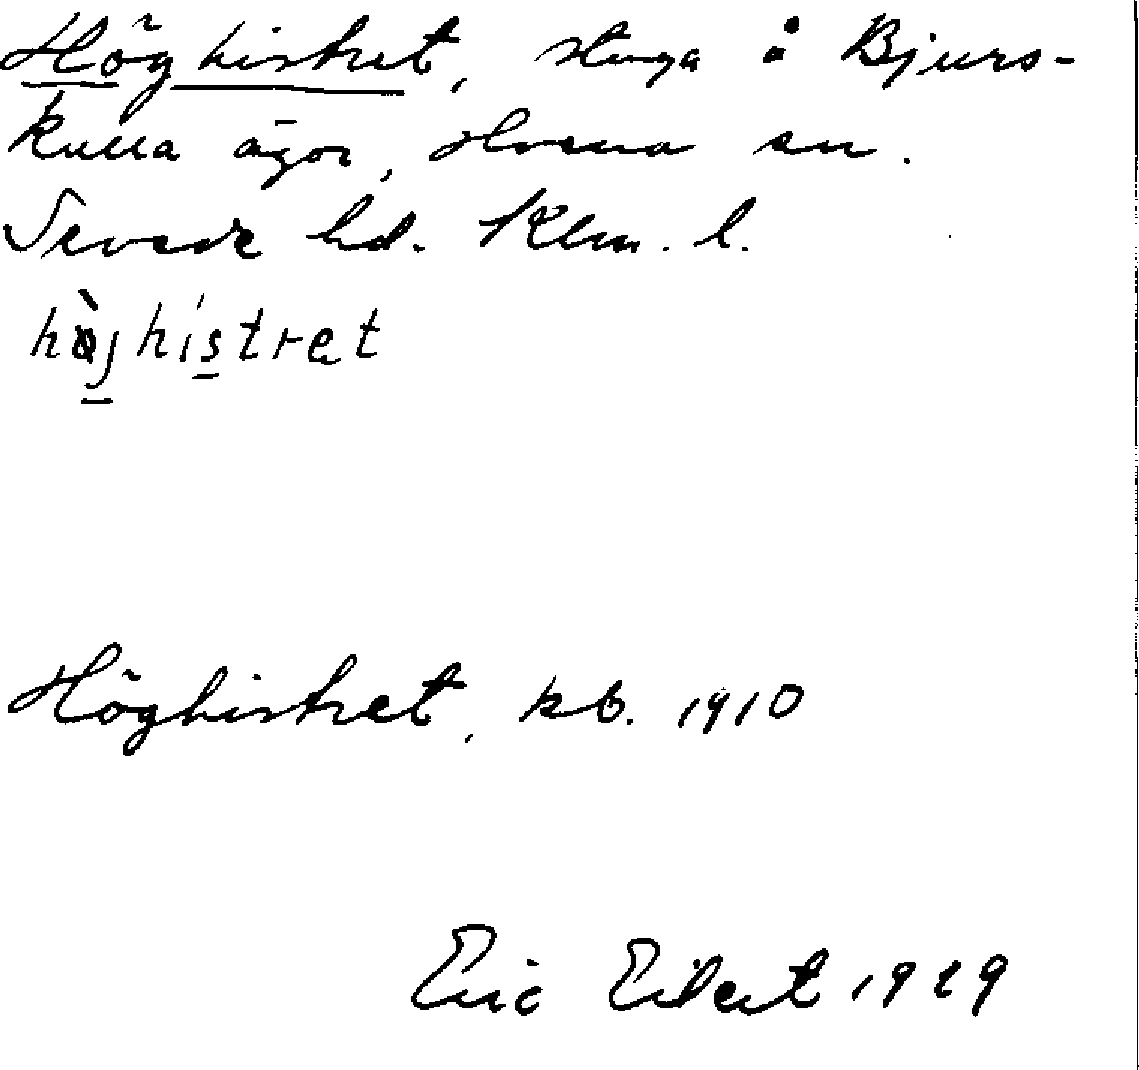 Höghistret, stuga å Bjurs-
kulla ägor, Hvena sn.
Sevede hd. Klm. l.
hø̀jhístret
Höghistret, kb. 1910
Eric 1929